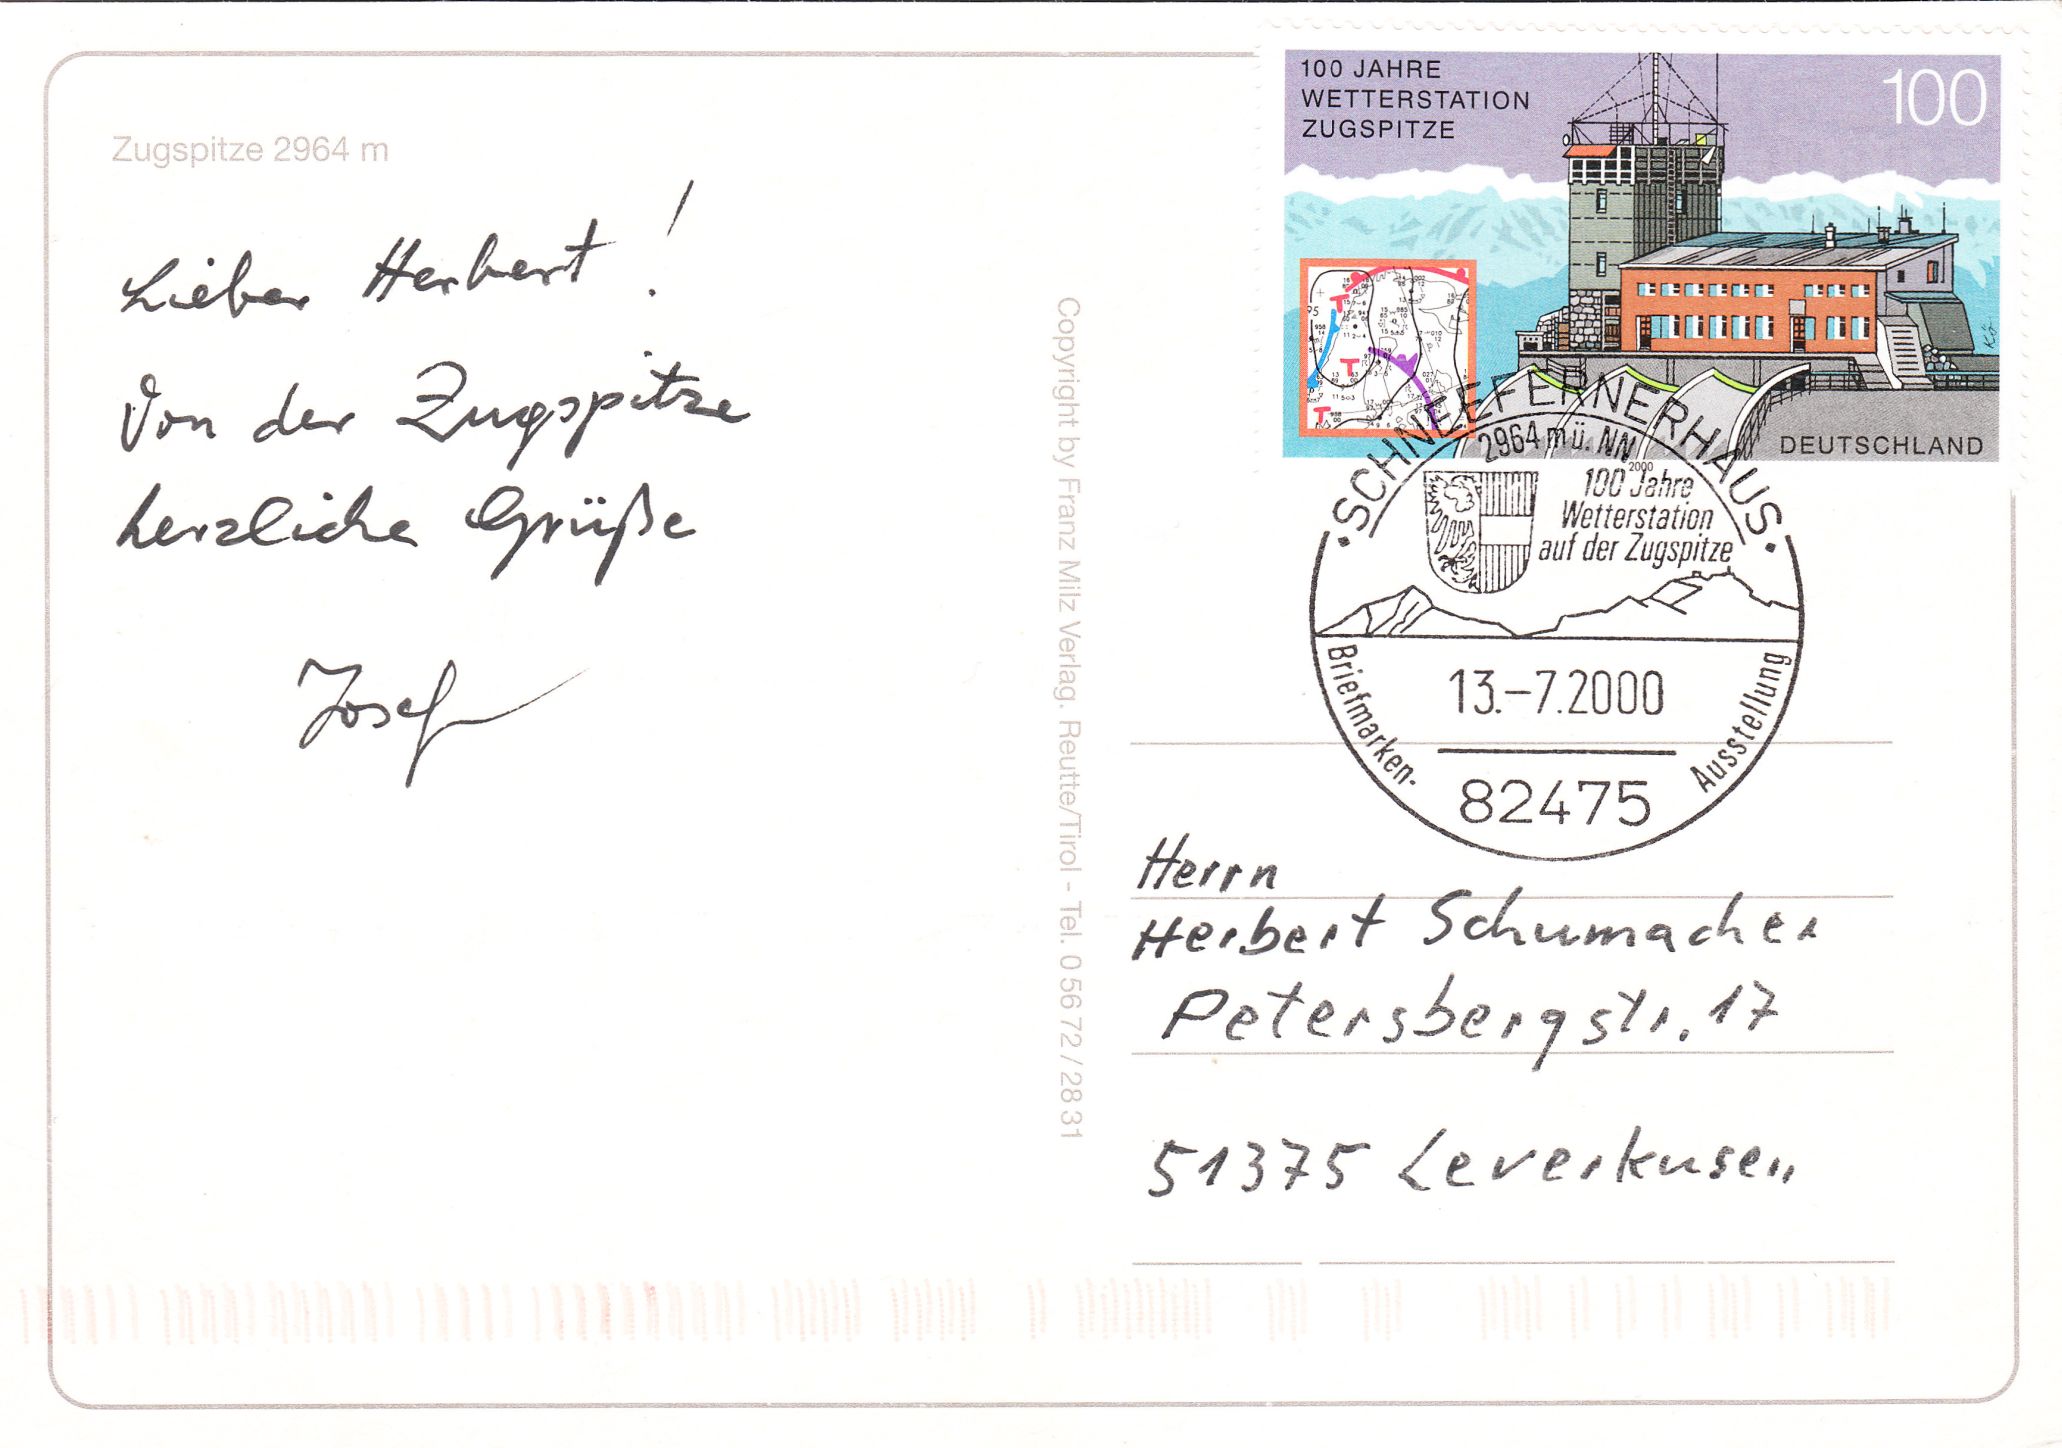 Zugspitze 2964 m
Lieber Herbert!
Von der Zugspitze
herzliche Grüße
Josef
Copyright by Franz Milz Verlag. Reutte/Tirol - Tel. 0 56 72 / 28 31
100 JAHRE
WETTERSTATION
ZUGSPITZE
100
DEUTSCHLAND
2000
• SCHNEEFERNERHAUS •
2964 m ü. NN
100 Jahre
Wetterstation
auf der Zugspitze
Briefmarken-
Ausstellung
13.-7.2000
82475
Herrn
Herbert Schumacher
Petersbergstr. 17
51375 Leverkusen